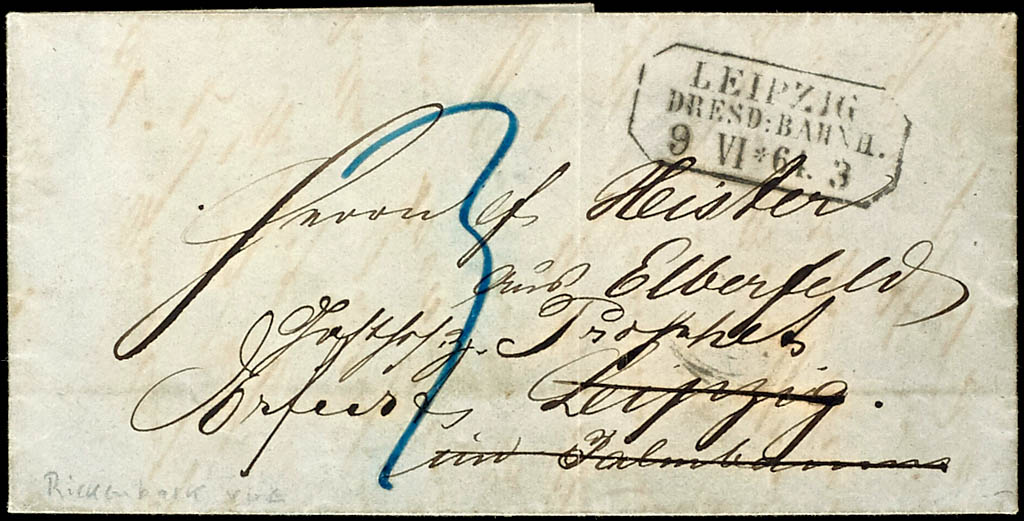 LEIPZIG
DRESD: BAHNH.
9 VI * 64. 3
3
Herrn Heister
aus Elberfeld
Gasthof z. Prophet
Erfurt Leipzig.
im Palmbaum